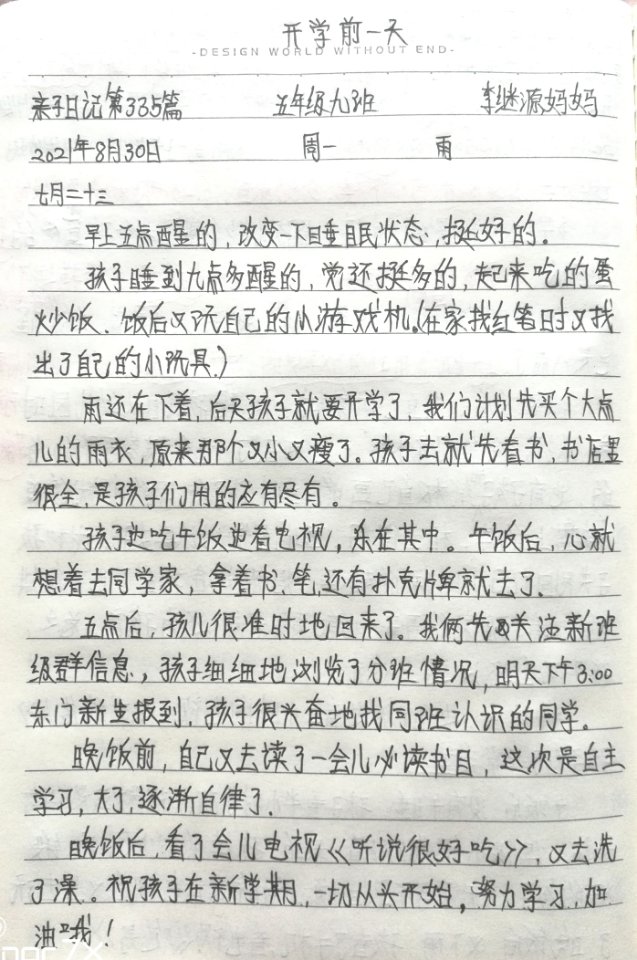 开学前一天
-DESIGN WORLD WITHOUT END-
亲子日记第335篇 五年级九班 李继源妈妈
2021年8月30日 周一 雨
七月二十三
早上五点醒的,改变一下睡眠状态,挺好的。
孩子睡到九点多醒的,觉还挺多的,起来吃的蛋
炒饭、饭后又玩自己的小游戏机。(在家找红笔时又找
出了自己的小玩具)
雨还在下着,后天孩子就要开学了,我们计划先买个大点
儿的雨衣,原来那个又小又瘦了。孩子去就先看书,书店里
很全,是孩子们用的应有尽有。
孩子边吃午饭边看电视,乐在其中。午饭后,心就
想着去同学家,拿着书、笔,还有扑克牌就去了。
五点后,孩儿很准时地回来了。我俩先关注新班
级群信息,孩子细细地浏览了分班情况,明天下午3:00
东门新生报到,孩子很兴奋地找同班认识的同学。
晚饭前,自己又去读了一会儿必读书目,这次是自主
学习,大了,逐渐自律了。
晚饭后,看了会儿电视《听说很好吃》,又去洗
了澡。祝孩子在新学期,一切从头开始,努力学习,加
油哦!